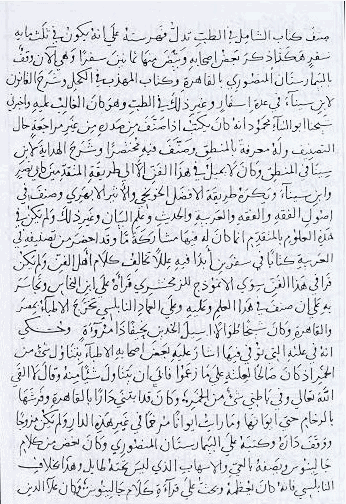 صنف كتاب الشامل في الطب تدل فهرسته على انه يكون في ثلثمايه
سفر هكذا ذكر بعض اصحابه وبيض منها ثمانين سفرا وهي الان وقف
بالبيمارستان المنصوري بالقاهرة وكتاب المهذب في الكحل وشرح القانون
لابن سيناء في عدة اسفار وغير ذلك في الطب وهو كان الغالب عليه واخبرني
شيخنا ابو الثناء محمود انه كان يكتب اذا صنف من صدره من غير مراجعة حال
التصنيف وله معرفة بالمنطق وصنف فيه مختصرا وشرح الهداية لابن
سينا في المنطق وكان لا يميل في هذا الفن الا الى طريقة المتقدمين كابي نصر
وابن سيناء ويكره طريقة الافضل الخونجي والاثير الابهري وصنف في
اصول الفقه والفقه والعربية والحديث وعلم البيان وغير ذلك ولم يكن في
هذه العلوم بالمتقدم انما كان له فيها مشاركة ما وقد احضر من تصنيفه في
العربية كتابا في سفرين ابدا فيه عللا تخالف كلام اهل الفن ولم يكن
قرا في هذا الفن سوى الانموذج للزمخشري قراه على ابن النحاس وتجاسر
به على ان صنف في هذا العلم وعليه وعلى العماد النابلسي تخرج الاطباء بمصر
والقاهرة وكان شيخا طوالا اسيل الخدين نحيفا ذا مروءة وحكي
انه في علته التي توفي فيها اشار عليه بعض اصحابه الاطباء بتناول شي من
الخمر اذ كان صالحا لعلته على ما زعموا فابى ان يتناول شيا منه وقال لا القى
الله تعالى وفي باطني شي من الخمر وكان قد ابتنى دارا بالقاهرة وفرشها
بالرخام حتى ايوانها وما رايت ايوانا مرخما في غير هذه الدار ولم يكن مزوجا
ووقف داره وكتبه على البيمارستان المنصوري وكان يغض من كلام
جالينوس ويصفه بالعي والاسهاب الذي ليس تحته طايل وهذا بخلاف
النابلسي فانه كان يعظمه ويحث على قراءة كلام جالينوس وكان علاء الدين